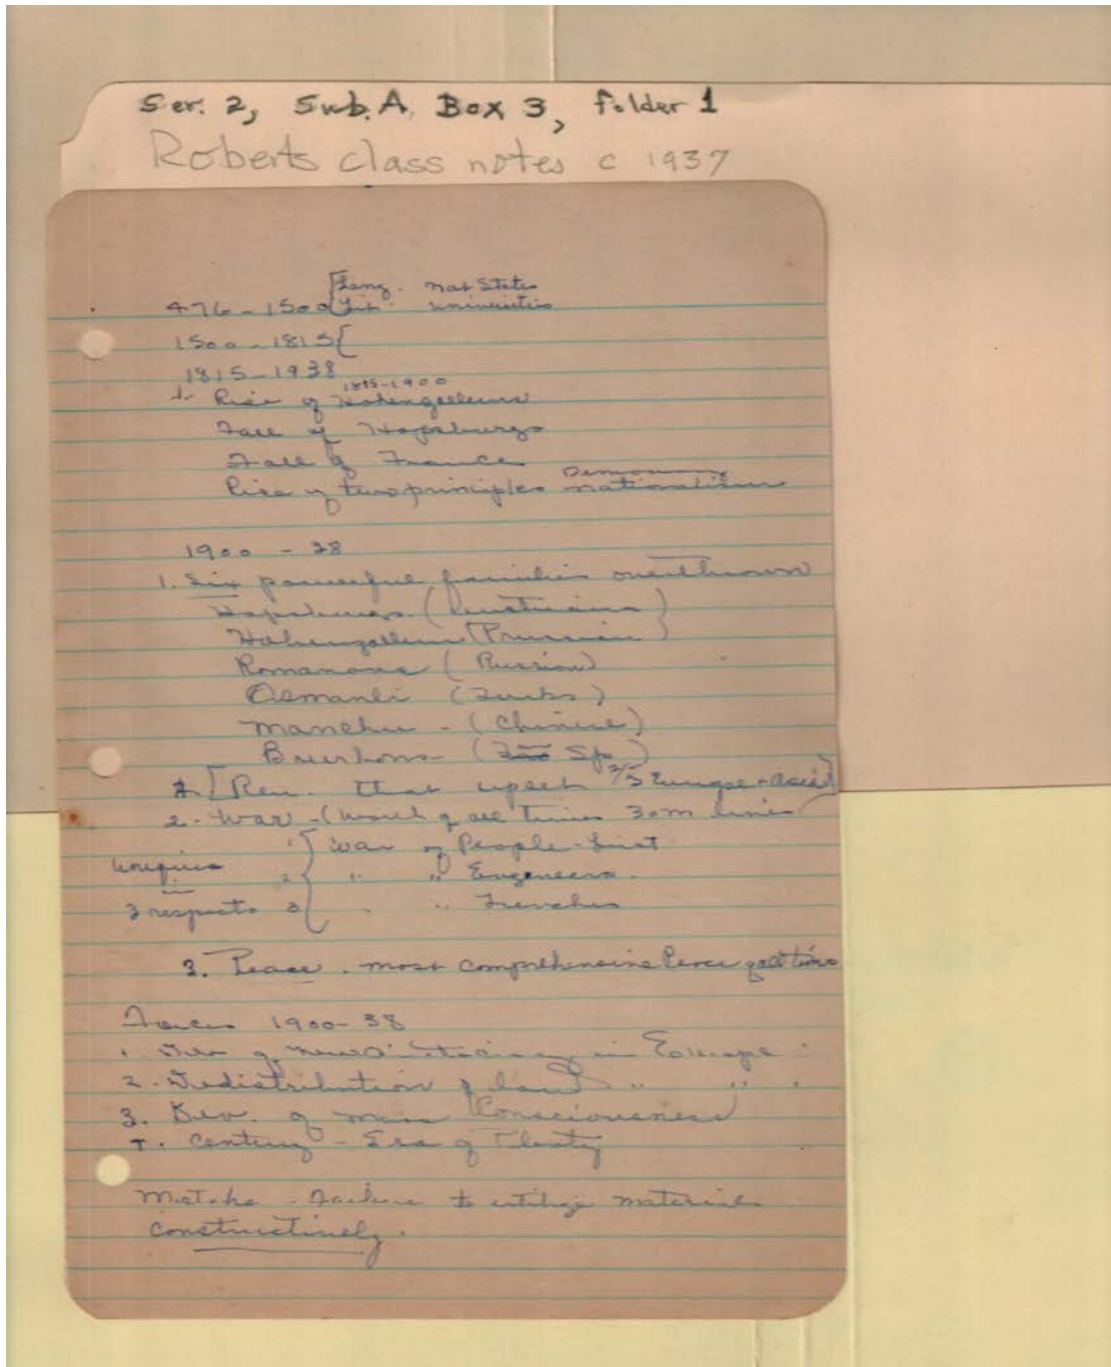 Ser. 2, Sub. A, Box 3, folder 1
Roberts class notes c 1937
Lang. Nat States
476-1500 Lit. Universities
1500-1815
1815-1938
1815-1900
1. Rise of Hohenzollerns
Fall of Hapsburgs
Fall of France
Democracy
Rise of two principles nationalism
1900 - 38
1. Six powerful families overthrown
Hapsburgs (Austrians)
Hohenzollern (Prussian)
Romanovs (Russian)
Osmanli (Turks)
Manchu - (Chinese)
Bourbons (Sp)
[Rev. that upset 2/3 Europe + Asia]
2. War - (Worst of all times 30m lives)
1 War of People - first
Uniques 2 " " Engeneers.
in
3 respects 3 " " Trenches
3. Peace. most comprehensive Peace of all time
Forces 1900-38
1. Dev of new in Europe
2. Redistribution of land " " .
3. Dev. of Mass Consciousness
4. Century - Era of Plenty
Mistake - Failure to utilize materials
constructively.